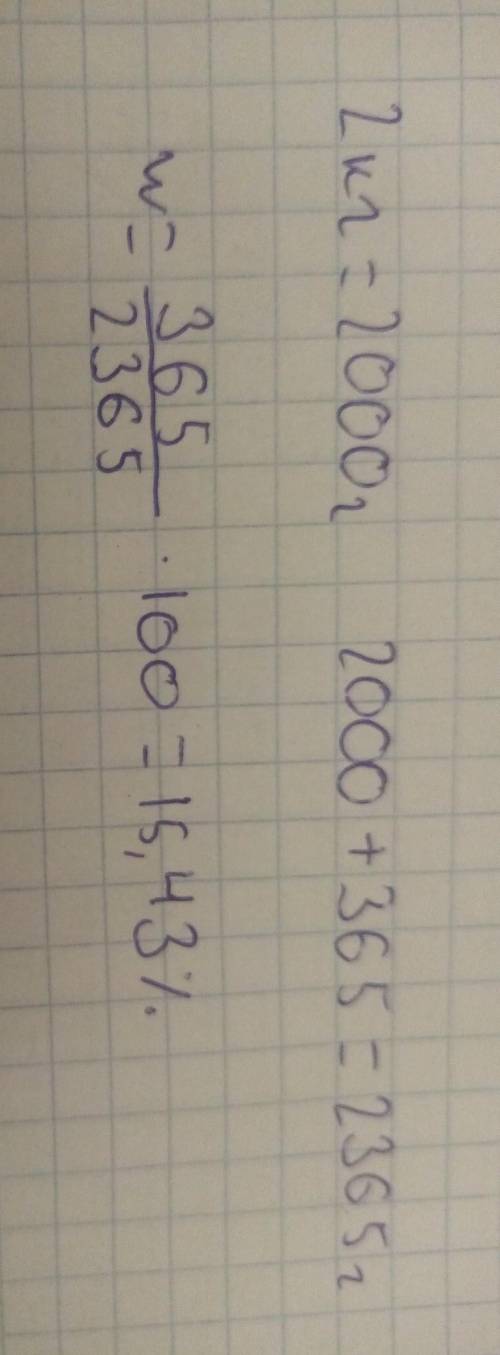 2 кг = 2000г 2000 + 365 = 2365г
w = 365/2365 · 100 = 15,43%